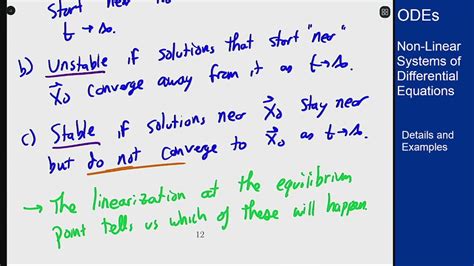 start near
t→∞.
b) Unstable if solutions that start "near"
X₀ converge away from it as t→∞.
c) Stable if solutions near X₀ stay near
but do not converge to X₀ as t→∞.
→ The linearization at the equilibrium
point tells us which of these will happen
12
ODEs
Non-Linear
Systems of
Differential
Equations
Details and
Examples